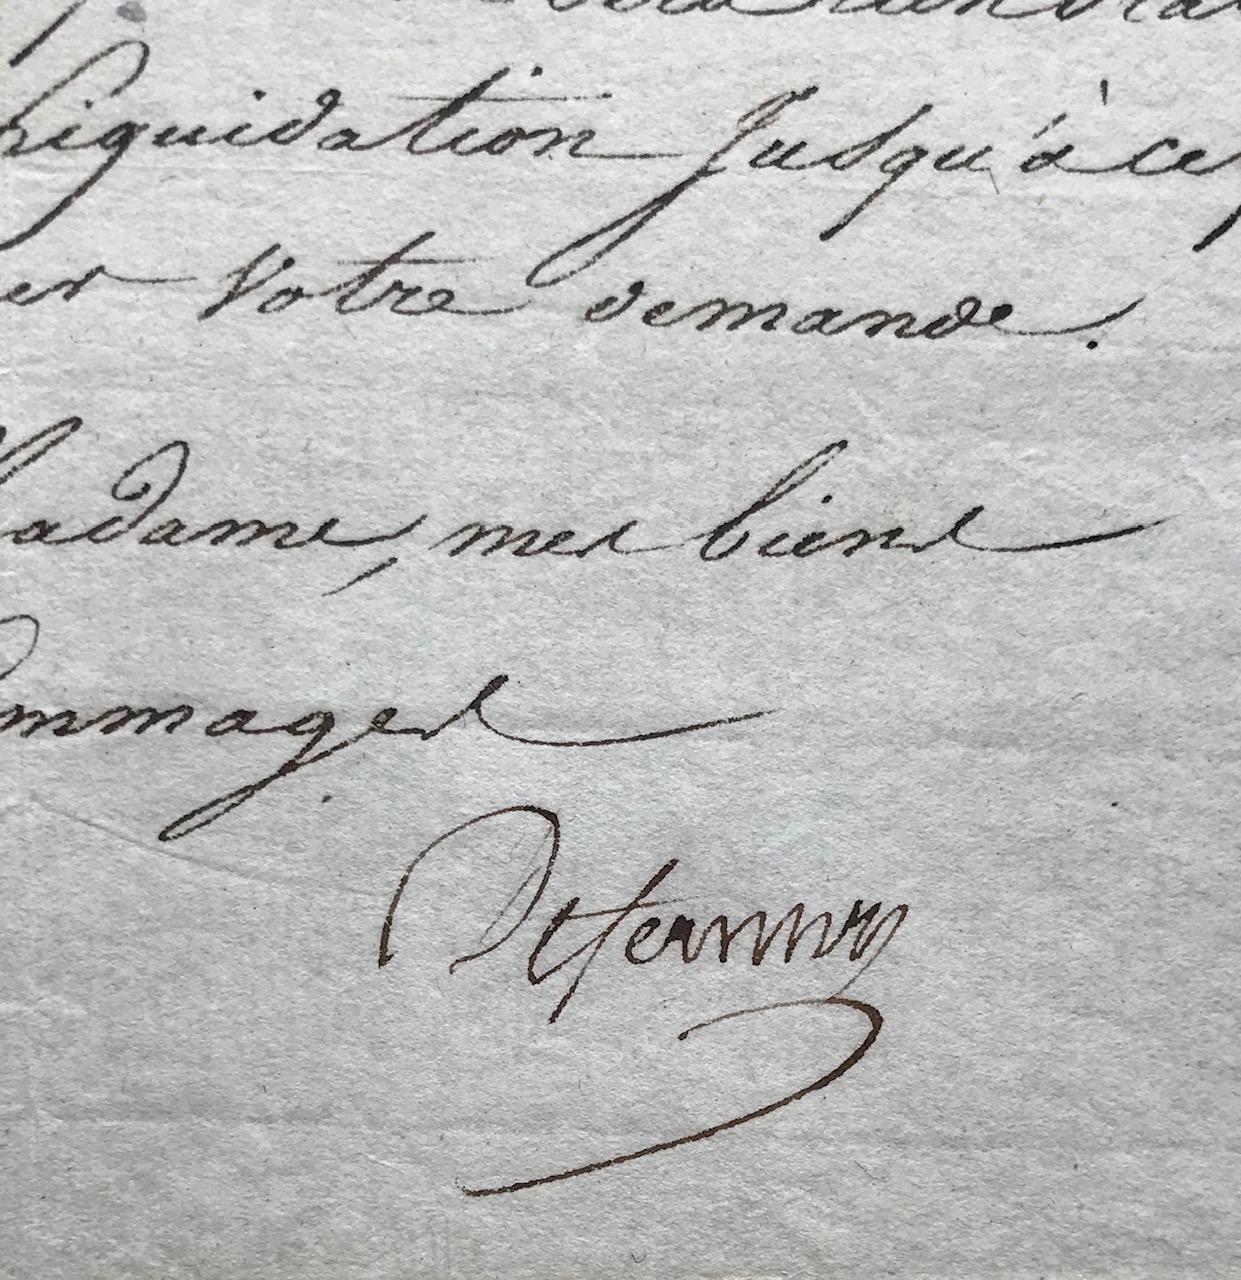 liquidation jusqu'à ce
er votre demande.
Madame, mes biens
ommages
Defermon